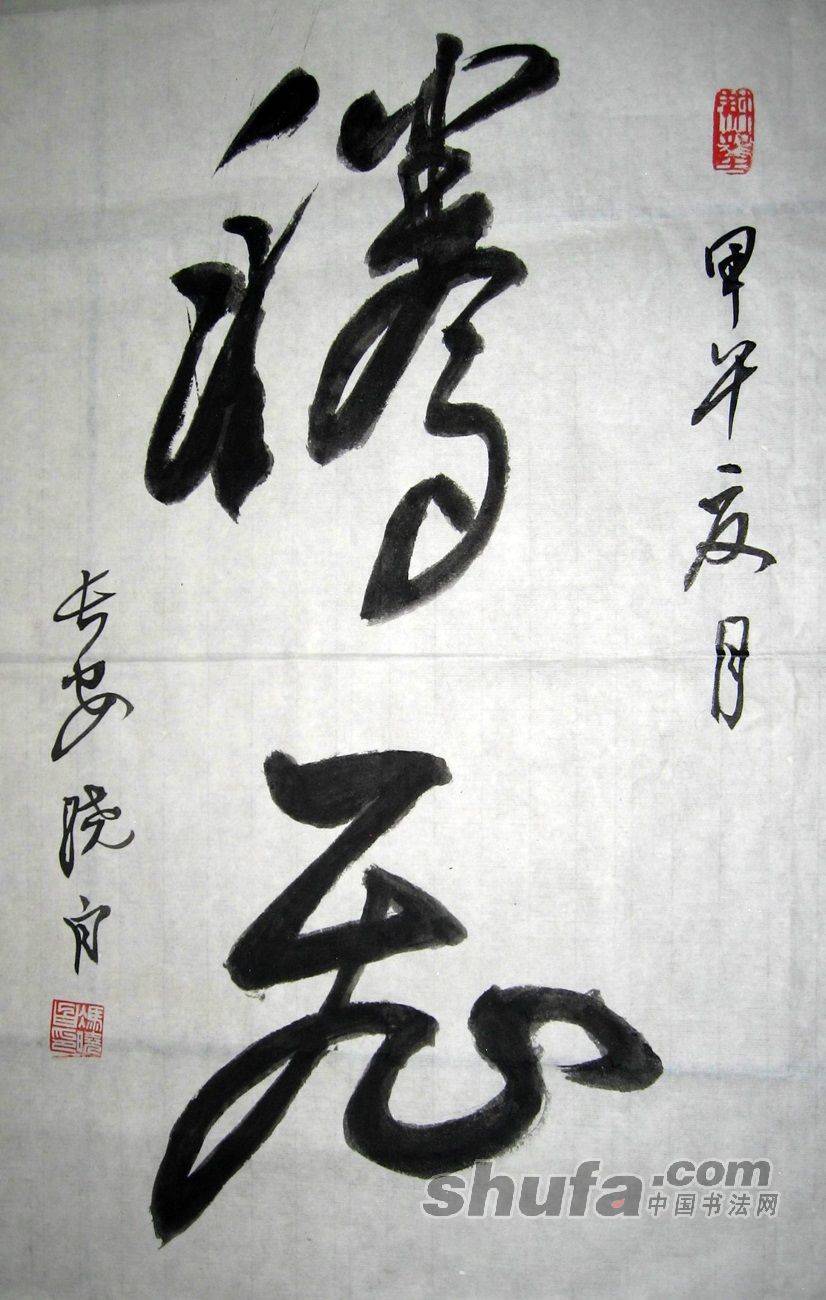 甲午夏月
腾飞
长安晓
shufa.com
中国书法网